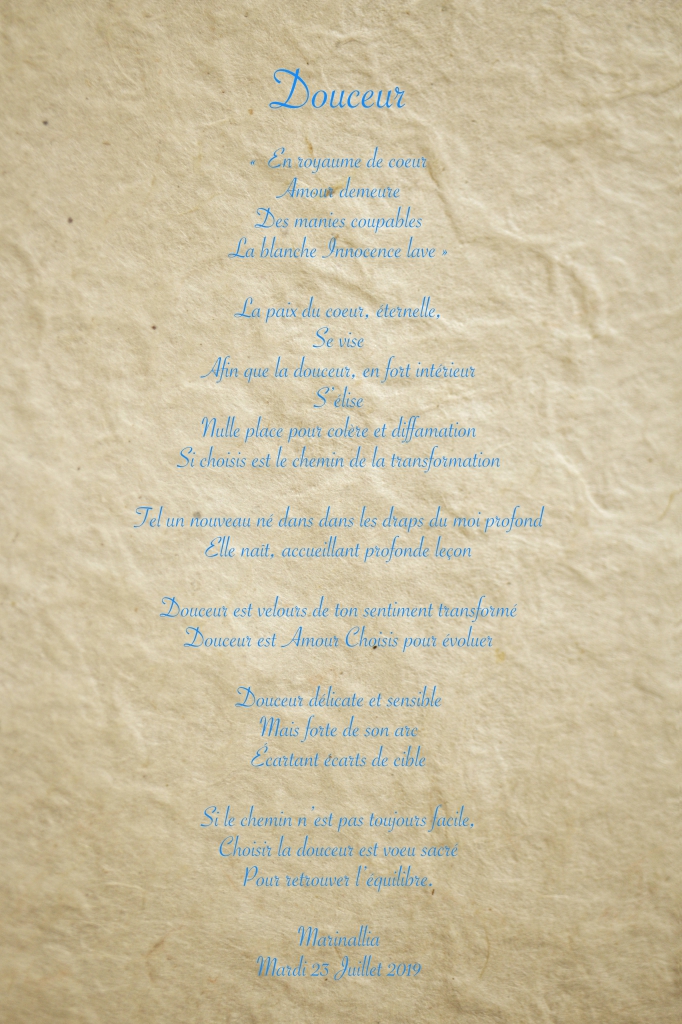 Douceur
« En royaume de coeur
Amour demeure
Des manies coupables
La blanche Innocence lave »
La paix du coeur, éternelle,
Se vise
Afin que la douceur, en fort intérieur
S'élise
Nulle place pour colère et diffamation
Si choisis est le chemin de la transformation
Tel un nouveau né dans dans les draps du moi profond
Elle naît, accueillant profonde leçon
Douceur est velours de ton sentiment transformé
Douceur est Amour Choisis pour évoluer
Douceur délicate et sensible
Mais forte de son arc
Écartant écarts de cible
Si le chemin n'est pas toujours facile,
Choisir la douceur est voeu sacré
Pour retrouver l'équilibre.
Marinallia
Mardi 23 Juillet 2019